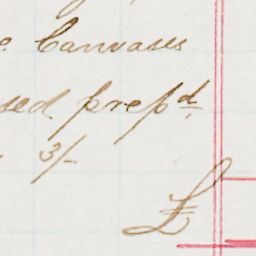 e. Canvases
sed prepd
3/-
£